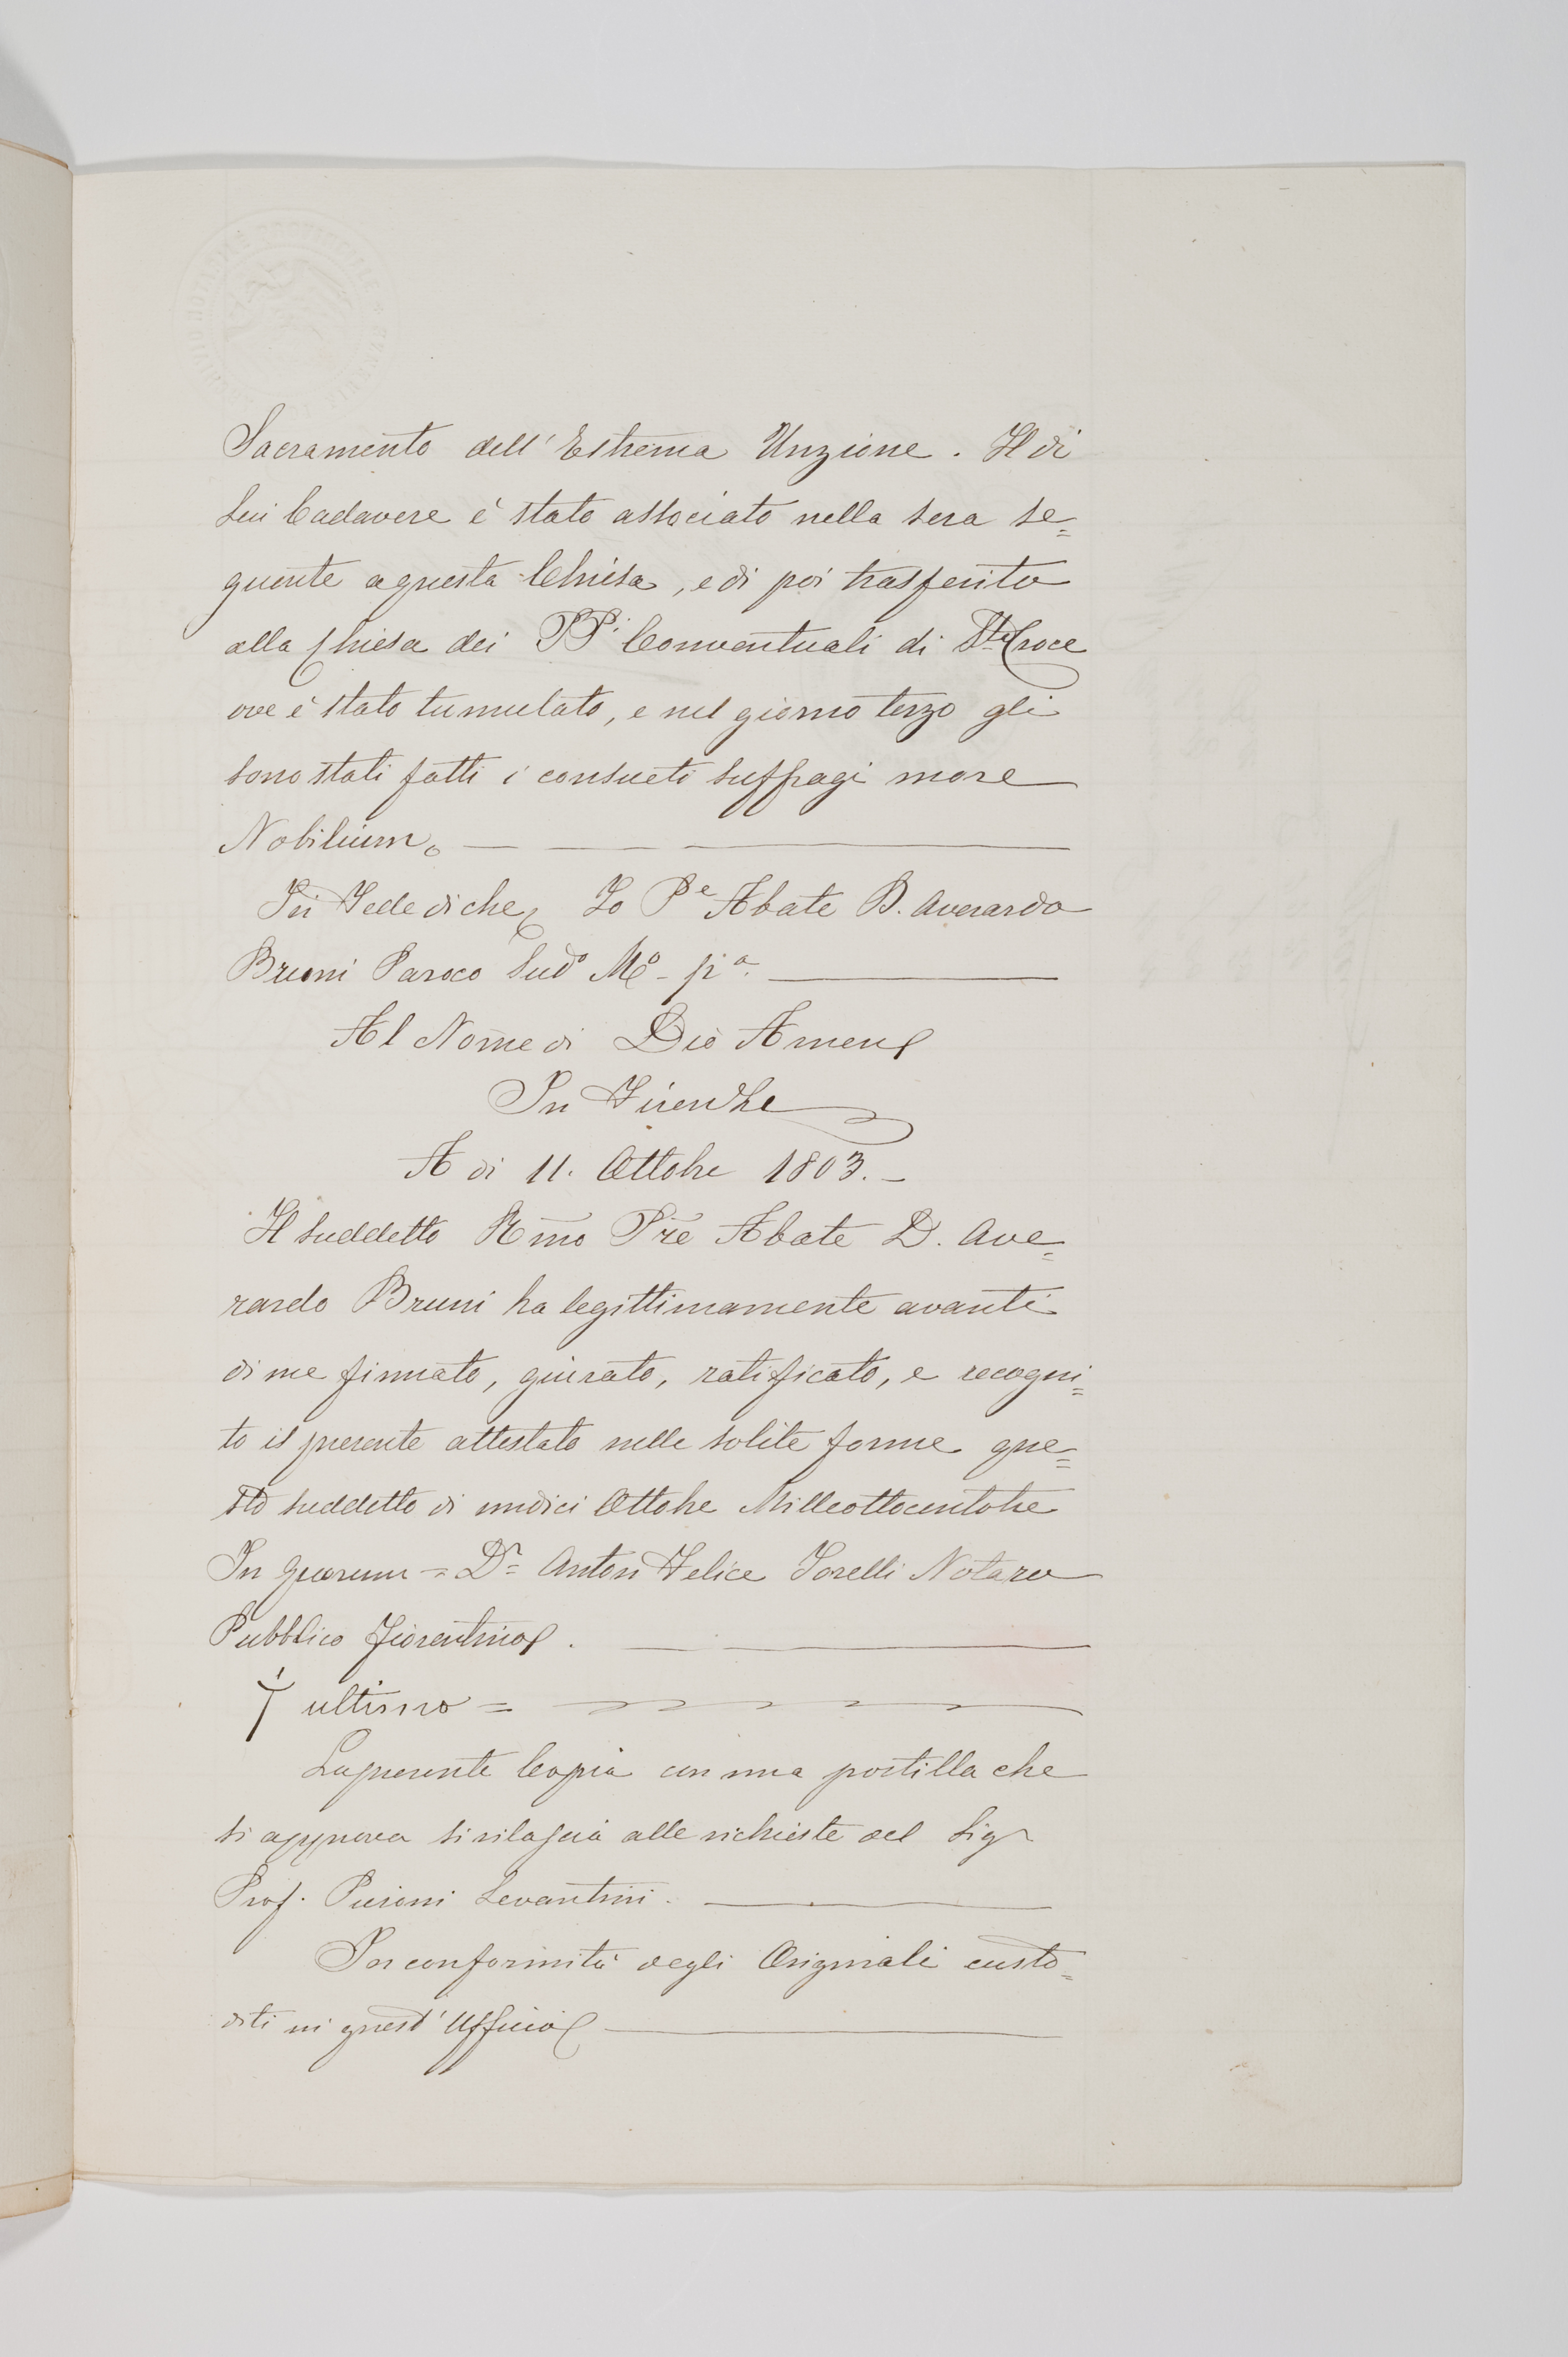 Sacramento dell' Estrema Unzione. Il di
Lui Cadavere è stato associato nella sera se=
guente a questa Chiesa, e di poi trasferito
alla Chiesa dei PP.i Conventuali di Sta Croce
ove è stato tumulato, e nel giorno terzo gli
sono stati fatti i consueti suffragi more
Nobilium.
In Fede di che Io Pe Abate D. Averardo
Bruni Paroco Sudo Mo- pa.
Al Nome di Dio Amen
In Firenze
A di 11. Ottobre 1803.-
Il suddetto Rmo Pre Abate D. Ave=
rardo Bruni ha legittimamente avanti
di me firmato, giurato, ratificato, e recogni=
to il presente attestato nelle solite forme que=
sto suddetto di undici Ottobre Milleottocentotre
In Quorum = Dr= Anton Felice Notaro
Pubblico Fiorentino.
ultimo =
La presente Copia con una postilla che
si approva si rilascia alle richieste del Sigr
Prof. Pieroni Levantini.
Per conformità degli Originali custo=
diti in quest' Ufficio